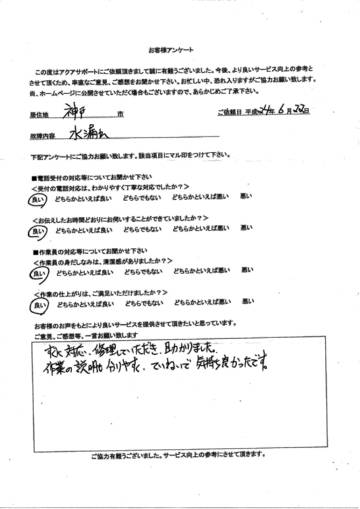 お客様アンケート
この度はアクアサポートにご依頼頂きまして誠に有難うございました。今後、より良いサービス向上の参考と
させて頂くため、率直なご意見、ご感想をお聞かせ下さい。お忙しい中、恐れ入りますがご協力お願い致します。
尚、ホームページに公開させていただく場合もございますので、あらかじめご了承下さい。
居住地 神戸 市 ご依頼日 平成24年6月22日
故障内容 水漏れ
下記アンケートにご協力お願い致します。該当項目にマル印をつけて下さい。
■電話受付の対応等についてお聞かせ下さい
<受付の電話対応は、わかりやすく丁寧な対応でしたか?>
良い どちらかといえば良い どちらでもない どちらかといえば悪い 悪い
<お伝えしたお時間どおりにお伺いすることができていましたか?>
良い どちらかといえば良い どちらでもない どちらかといえば悪い 悪い
■作業員の対応等についてお聞かせ下さい
<作業員の身だしなみは、清潔感がありましたか?>
良い どちらかといえば良い どちらでもない どちらかといえば悪い 悪い
<作業の仕上がりは、ご満足いただけましたか?>
良い どちらかといえば良い どちらでもない どちらかといえば悪い 悪い
お客様のお声をもとにより良いサービスを提供させて頂きたいと思っています。
ご意見、ご感想等、一言お願い致します
対応、修理していただき、助かりました。
作業の説明も分りやすく、ていねいで気持ち良かったです。
ご協力有難うございました。サービス向上の参考にさせて頂きます。